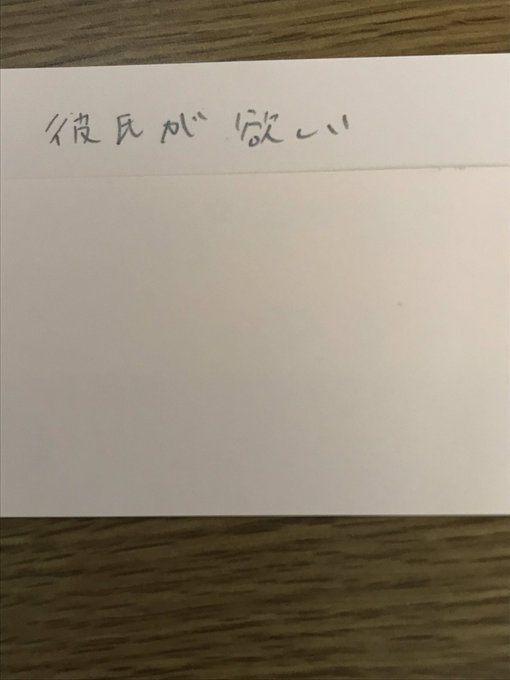 彼氏が欲しい